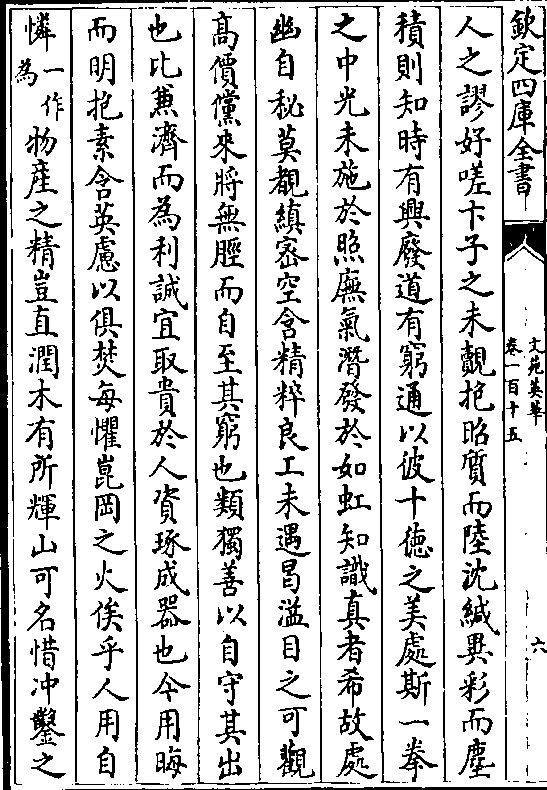 欽定四庫全書
文苑英華
卷一百十五
六
人之謬好嗟卞子之未覿抱昭質而陸沈緘異彩而塵
積則知時有興廢道有窮通以彼十徳之美處斯一拳
之中光未施於照廡氣潛發於如虹知識真者希故處
幽自秘莫覩縝密空含精粹良工未遇曷溢目之可觀
高價儻來將無脛而自至其窮也類獨善以自守其出
也比兼濟而為利誠宜取貴於人資琢成器也今用晦
而明抱素含英慮以俱焚每懼崑岡之火俟乎人用自
憐一作為物産之精豈直潤木有所輝山可名惜冲鑿之